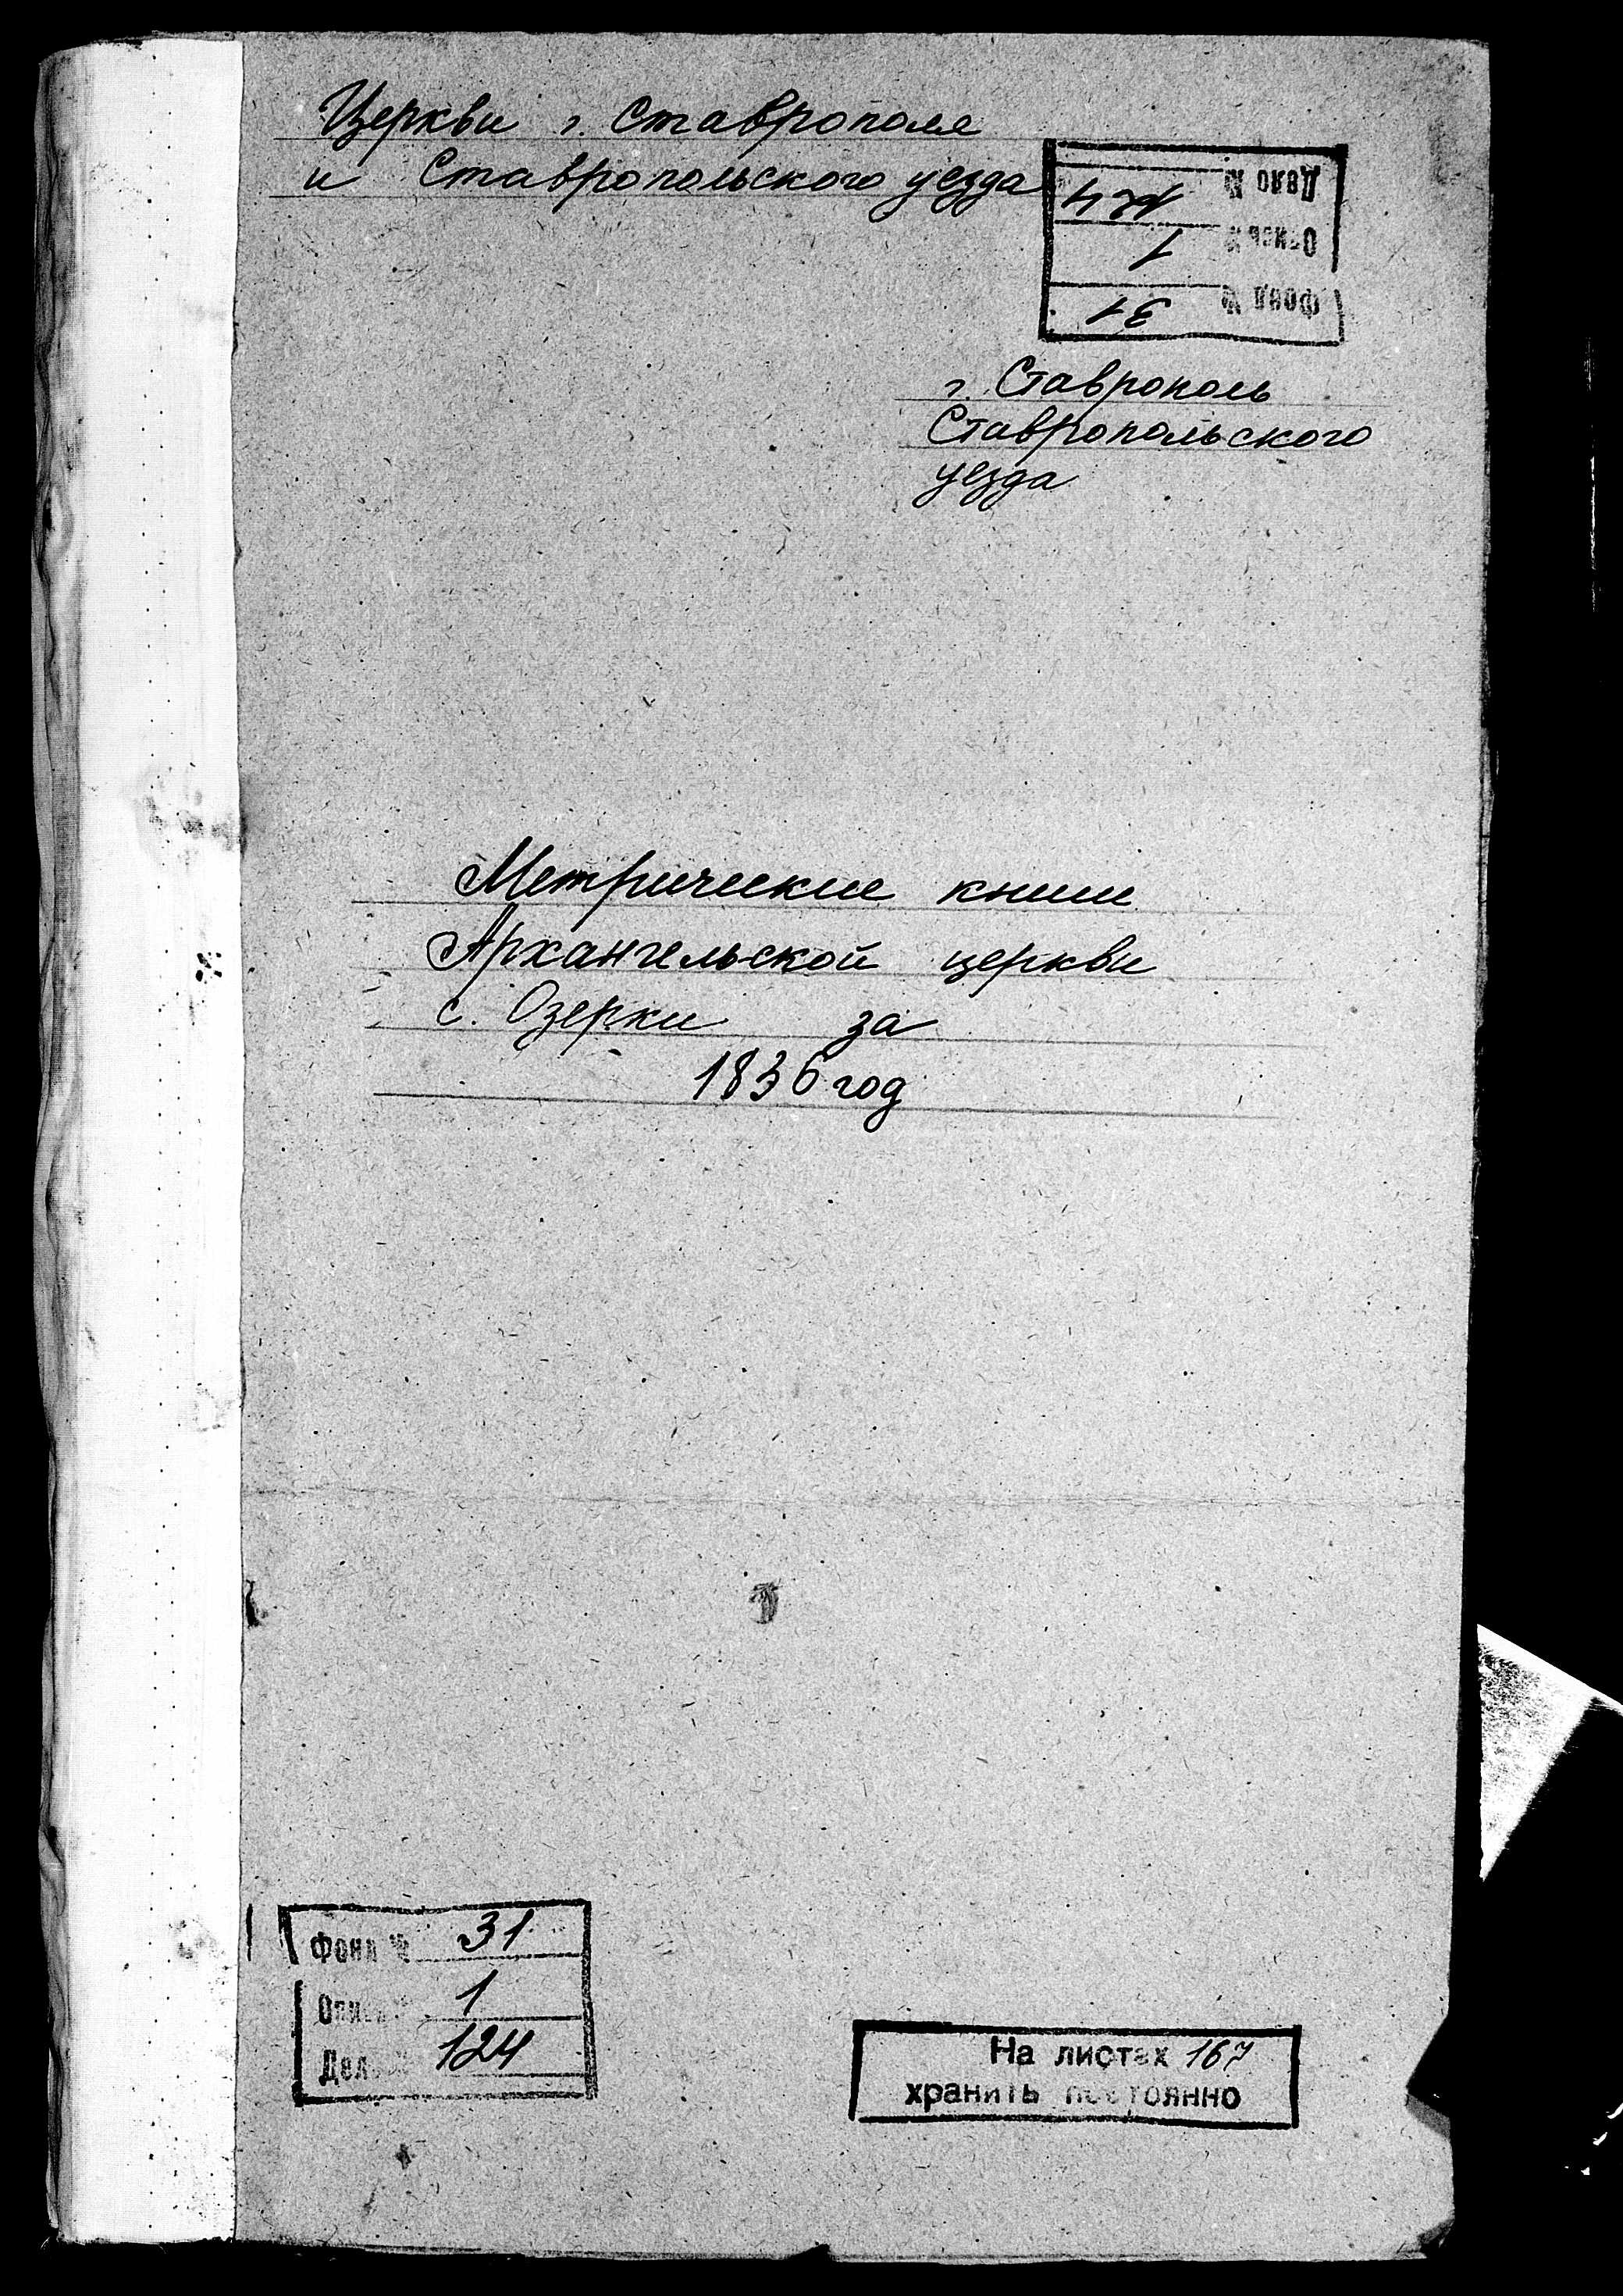 Церкви г. Ставрополя
и Ставропольского уезда
Дело № 124
Опись № 1
Фонд № 31
г. Ставрополь
Ставропольского
уезда
Метрические книги
Архангельской церкви
с. Озерки за
1836 год
Фонд № 31
Опись № 1
Дело № 124
На листах 167
хранить постоянно